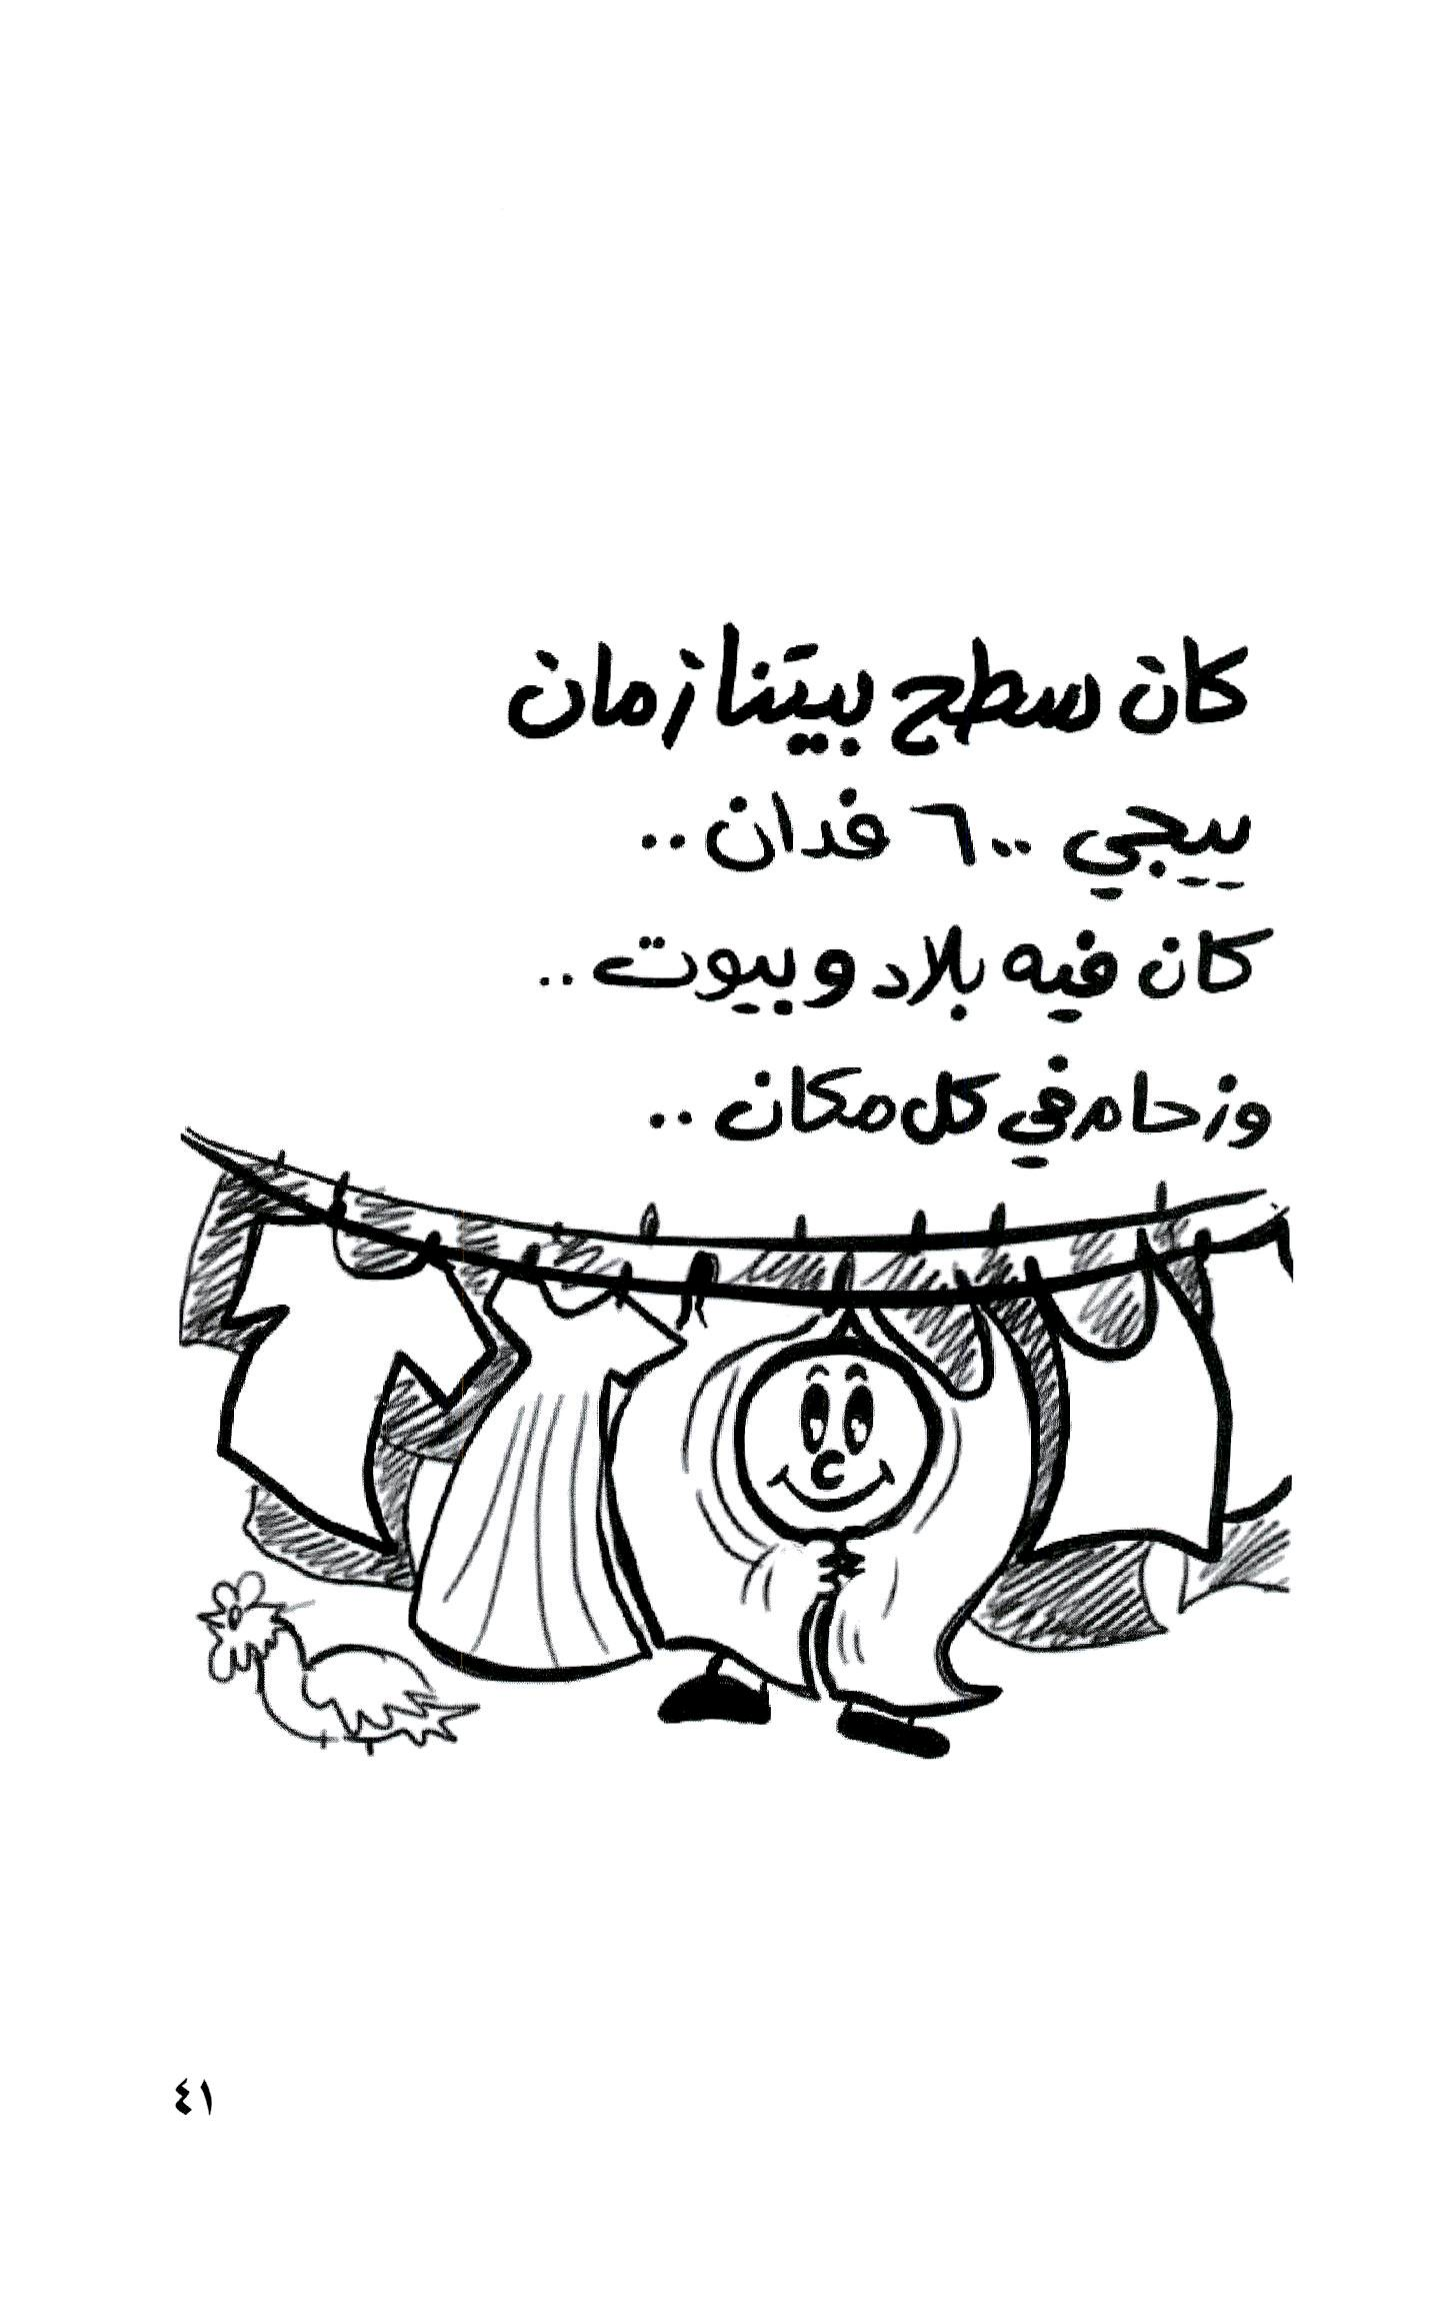 كان سطح بيتنا زمان
ييجي ٦٠٠ فدان ..
كان فيه بلاد وبيوت ..
وزحام في كل مكان ..
٤١